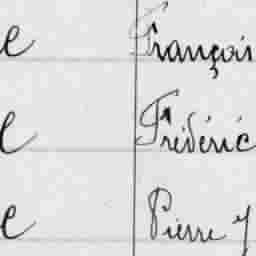 e Françoi
e Frédéric
e Pierre J